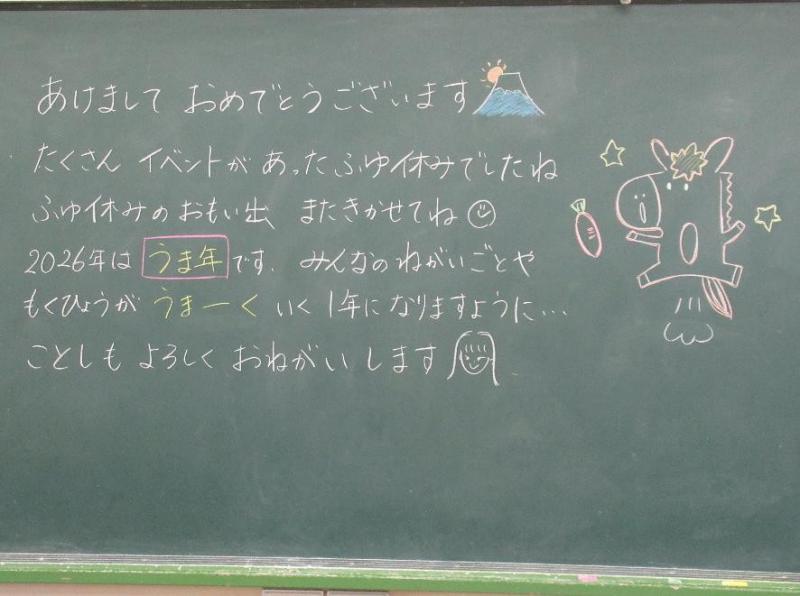 あけまして おめでとうございます
たくさん イベントが あった ふゆ休みでしたね
ふゆ休みの おもい出 またきかせてね
2026年は うま年 です. みんなの ねがいごとや
もくひょうが うまーく いく 1年に なりますように...
ことしも よろしく おねがい します